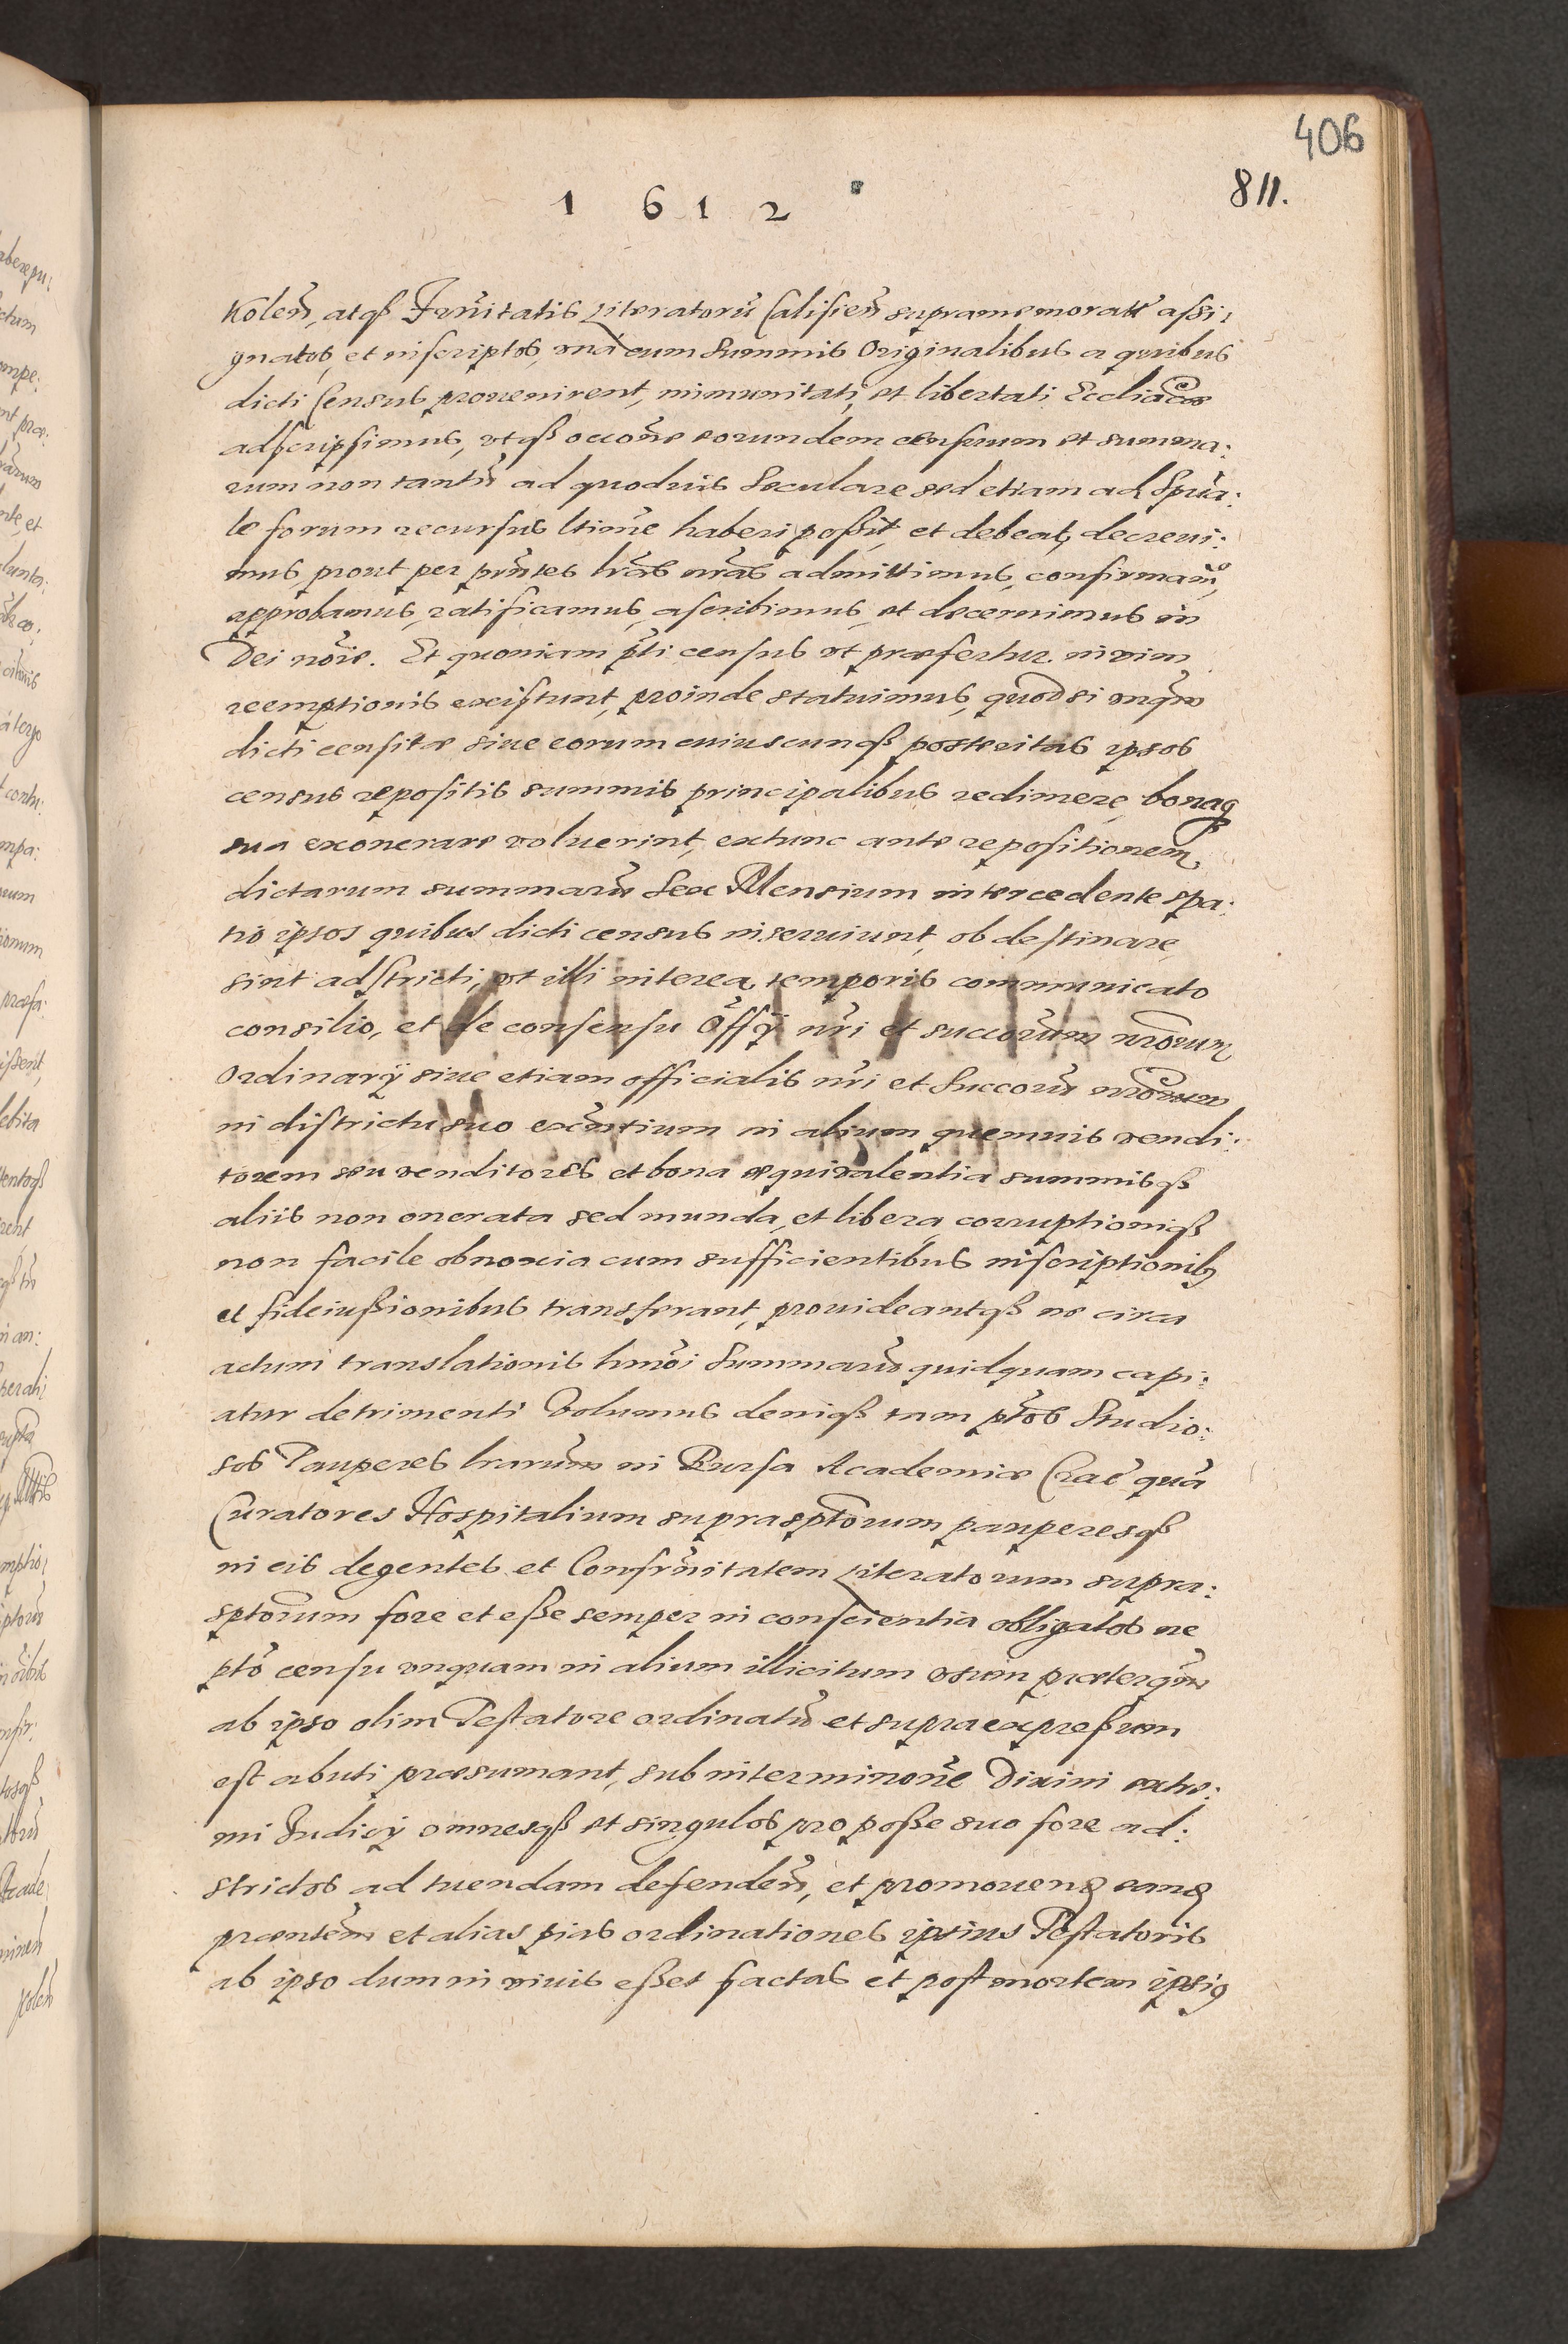 406
811.
1 6 1 2
Kolen̄, atqꝫ Frñitatis Literatorū Calisien̄ supramemorat̄ assi:
gnatos, et inscriptos, unà cum Summis Originalibus a quibus
dicti Census provenirent, immunitati, et libertati Ecclīacae
adscripsimus, utqꝫ occōne eorundem censuum et summa:
rum non tantū ad quodvis Seculare sed etiam ad Spūa:
le forum recursus ltīme haberi possit, et debeat, decrevi:
mus, prout per pn̄tes lrās nrās admittimus, confirmam̄,
approbamus, ratificamus, ascribimus, et decernimus in
Dei nōie. Et quoniam p̄ti census ut praefertur in vim
reemptionis existunt, proinde statuimus, quod si unqm̄
dicti censitae sive eorum cuiuscunqꝫ posteritas ipsos
census repositis summis principalibus redimere, bonaq
sua exonerare voluerint, extunc ante repositionem
dictarum summarū Sex Mensium intercedente spa:
tio ipsos quibus dicti census inserviunt, obdestinare
sint adstricti, ut illi interea temporis communicato
consilio, et de consensu Offy nr̄i et succorūm nrōrum
Ordinarÿ sive etiam officialis nr̄i et Succorū nrōrum
in districtu suo exn̄tium in alium quemvis vendi:
torem seu venditores et bona aequivalentia summisqꝫ
aliis non onerata sed munda, et libera, corruptioniqꝫ
non facile obnoxia cum sufficientibus inscriptionibꝫ
et fideiussionibus transferant, provideantqꝫ ne circa
actum translationis hmōi Summarū quidquam capi:
atur detrimenti. Volumus deniqꝫ tam p̄tos Studio:
sos Pauperes lrarūm in Bursa Academiae Crac̄ quā
Curatores Hospitalium suprasptōrum pauperesqꝫ
in eis degentes et Confrn̄itatem Literatorum supra:
sptōrum fore et esse semper in conscientia obligatos ne
ptō censu unquam in alium illicitum usum praeterqm̄
ab ipso olim Testatore ordinatū et supraexpressum
est abuti praesumant, sub interminōne Divini extre:
mi Judicÿ omnesqꝫ et singulos pro posse suo fore ad:
strictos ad tuendam defenden̄, et promovend eand
praentem et alias pias ordinationes ipsius Testatoris
ab ipso dum in vivis esset factas et post mortem ipsiꝰ